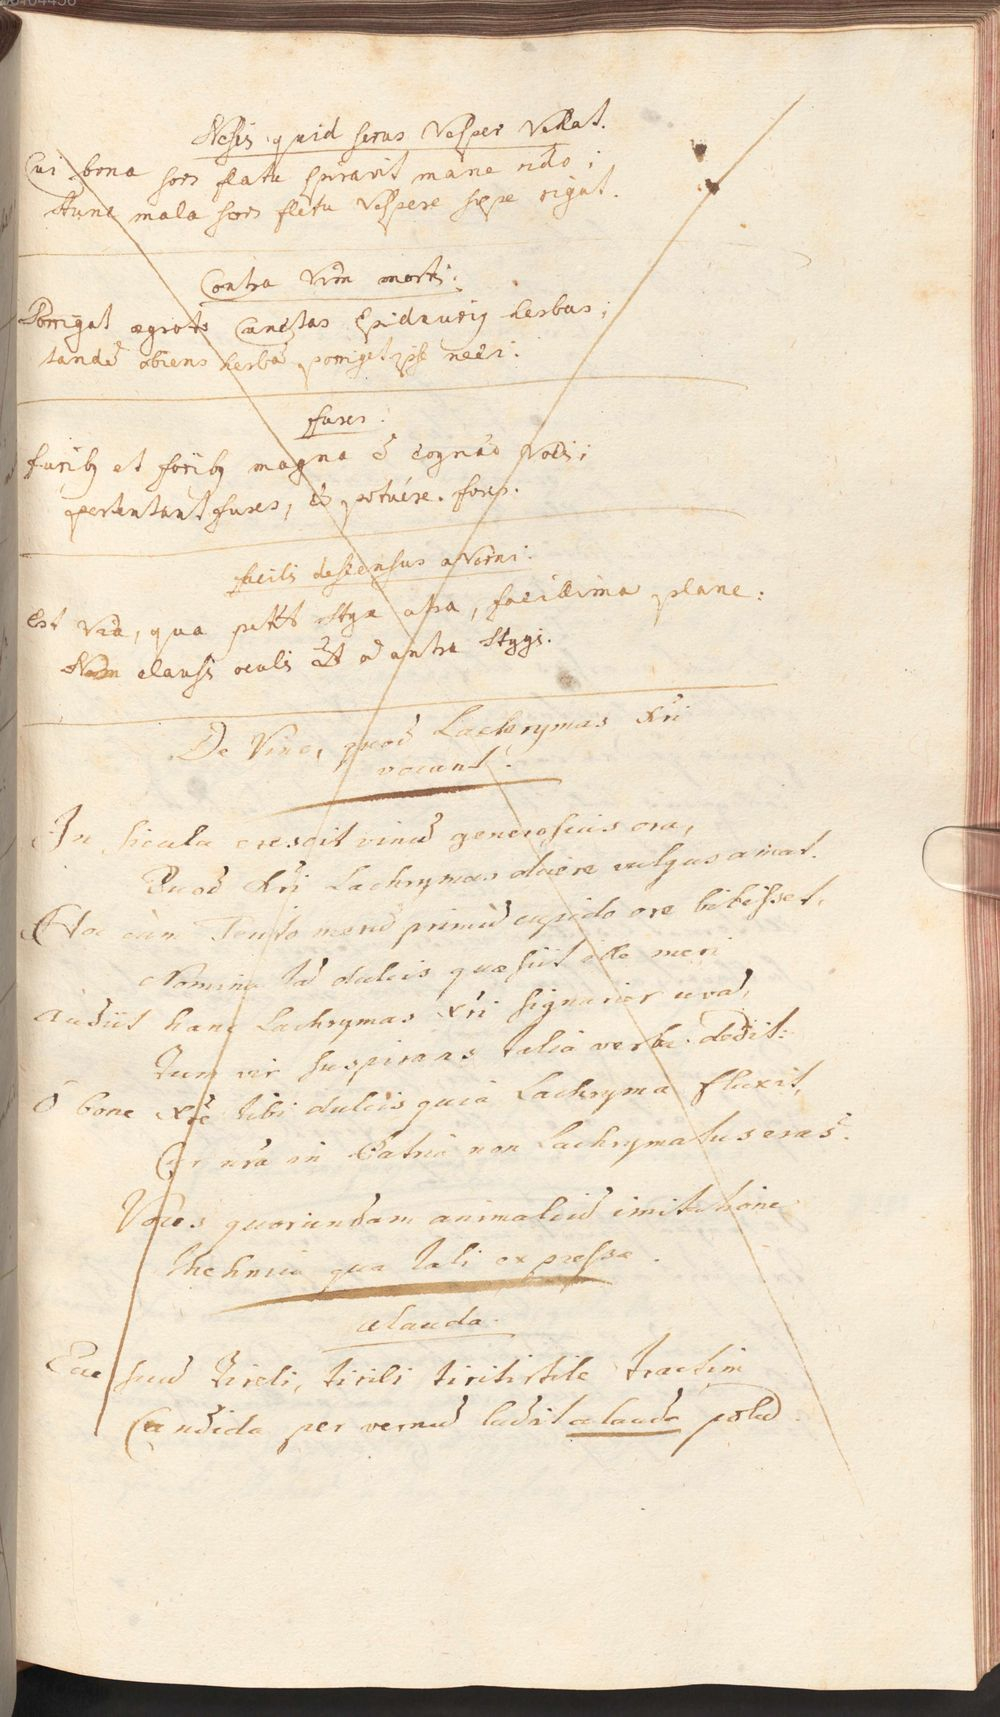 Nescis quid serus vesper vehat.
Cui bona sors flatu spirarit mane secundo;
Hunc mala sors fletu vespere sæpe rigat.
Contra vim mortis.
Porrigat ægrotis cunctas Epidaurij herbas;
tandē obiens herbā porriget ipse neci.
fures.
furibꝫ et foribꝫ magna ē cognāo vocis;
pertentant fures, et potuére. fores.
facilis descensus averni.
Est via, qua petit Stygia, facillima plane:
Nam clausis oculis ad antra Stygis.
De Vino, quod Lachrymas Xr̃i
vocant.
In sicula crescit vinū generosius ora,
Quod Xr̃i Lachrymas dicere vulgus amat.
Hoc cùm Teuto merū primū cupido ore bibisset,
Nomina tā dulcis quæsiit ille meri
Audiit hanc Lachrymas Xr̃i signarier uvā,
Tum vir suspirans talia verba dedit:
O bone Xr̃e tibi dulcis quia Lachryma fluxit,
Cur nr̃a in Patria non Lachrymatus eras?
Voces quorundam animaliū imitatione
thehnica qua tali expressæ.
alauda.
Ecce suū tireli, tirili tiritirtile tractim
Candida per vernū ludit alauda polū.